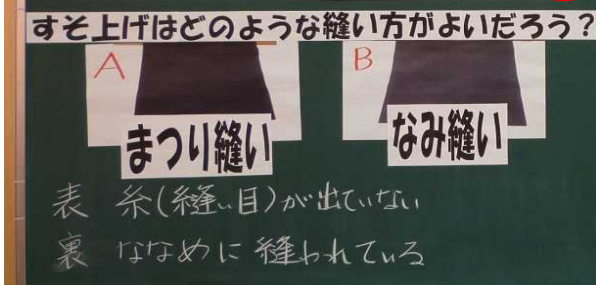 すそ上げはどのような縫い方がよいだろう？
A B
まつり縫い なみ縫い
表 糸(縫い目)が出ていない
裏 ななめに縫われている